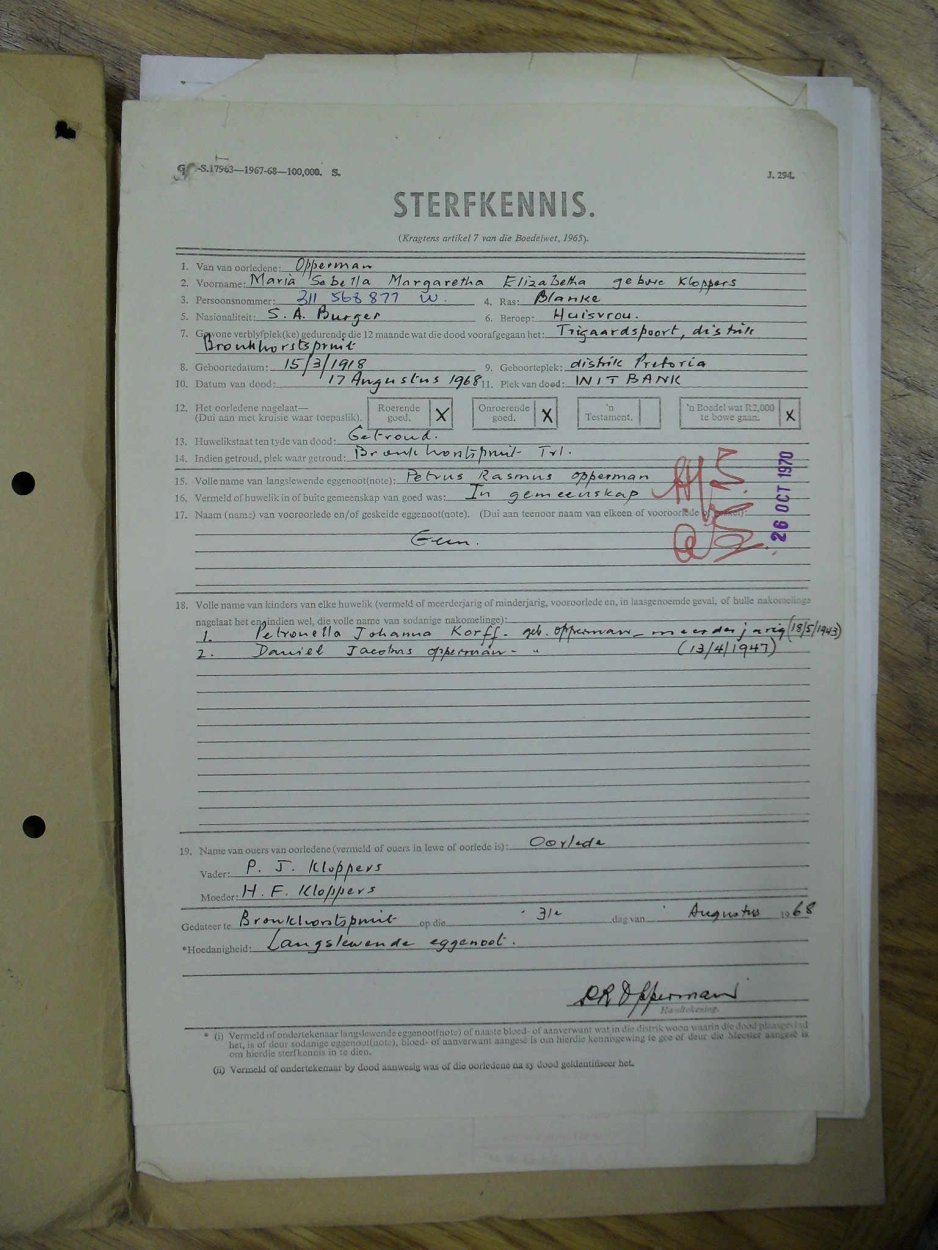 G.P.-S.17963—1967-68—100,000. S. J. 294.
STERFKENNIS.
(Kragtens artikel 7 van die Boedelwet, 1965).
1. Van van oorledene: Opperman
2. Voorname: Maria Sebella Margaretha Elizabetha gebore Kloppers
3. Persoonsnommer: 311 568 877 W. 4. Ras: Blanke
5. Nasionaliteit: S.A. Burger 6. Beroep: Huisvrou.
7. Gewone verblyfplek(ke) gedurende die 12 maande wat die dood voorafgegaan het: Trigaardspoort, distrik
Bronkhorstspruit
8. Geboortedatum: 15/3/1918 9. Geboorteplek: distrik Pretoria
10. Datum van dood: 17 Augustus 1968 11. Plek van dood: WITBANK
12. Het oorledene nagelaat— Roerende goed. X Onroerende goed. X 'n Testament. 'n Boedel wat R2,000 te bowe gaan. X
(Dui aan met kruisie waar toepaslik).
13. Huwelikstaat ten tyde van dood: Getroud.
14. Indien getroud, plek waar getroud: Bronkhorstspruit Tvl.
15. Volle name van langslewende eggenoot(note): Petrus Rasmus Opperman
16. Vermeld of huwelik in of buite gemeenskap van goed was: In gemeenskap
26 OCT 1970
17. Naam (name) van vooroorlede en/of geskeide eggenoot(note). (Dui aan teenoor naam van elkeen of vooroorlede of
Geen.
18. Volle name van kinders van elke huwelik (vermeld of meerderjarig of minderjarig, vooroorlede en, in laasgenoemde geval, of hulle nakomelinge
nagelaat het en indien wel, die volle name van sodanige nakomelinge):
1. Petronella Johanna Korff - geb. Opperman - meerderjarig (18/5/1943)
2. Daniel Jacobus Opperman - " (13/4/1947)
19. Name van ouers van oorledene (vermeld of ouers in lewe of oorlede is): Oorlede
Vader: P. J. Kloppers
Moeder: H. F. Kloppers
Gedateer te Bronkhorstspruit op die 31e dag van Augustus 1968
*Hoedanigheid: Langslewende eggenoot.
P R Opperman
Handtekening.
* (i) Vermeld of ondertekenaar langslewende eggenoot(note) of naaste bloed- of aanverwant wat in die distrik woon waarin die dood plaasgevind
het, is of deur sodanige eggenoot(note), bloed- of aanverwant aangesê is om hierdie kennisgewing te gee of deur die Meester aangesê is
om hierdie sterfkennis in te dien.
(ii) Vermeld of ondertekenaar by dood aanwesig was of die oorledene na sy dood geïdentifiseer het.